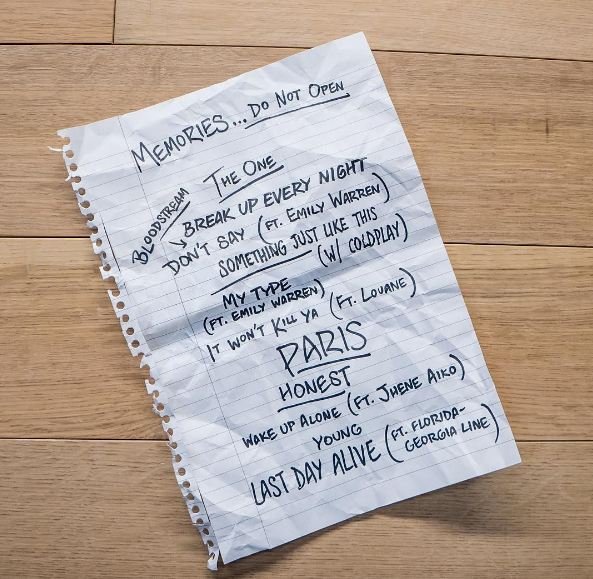 MEMORIES...DO NOT OPEN
THE ONE
BLOODSTREAM
BREAK UP EVERY NIGHT
DON'T SAY (FT. EMILY WARREN)
SOMETHING JUST LIKE THIS
(W/ COLDPLAY)
MY TYPE
(FT. EMILY WARREN)
IT WON'T KILL YA (FT. LOUANE)
PARIS
HONEST
WAKE UP ALONE (FT. JHENE AIKO)
YOUNG
LAST DAY ALIVE (FT. FLORIDA-
GEORGIA LINE)